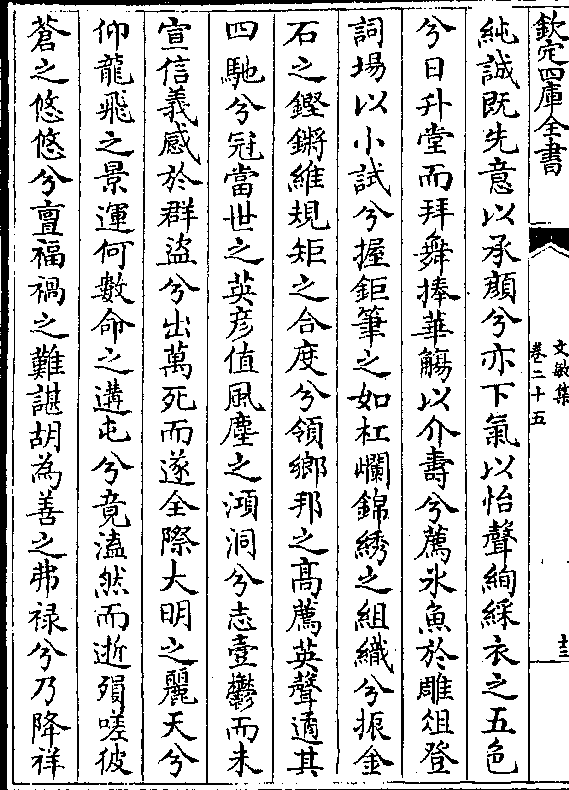 欽定四庫全書
文敏集
卷二十五
十三
純誠既先意以承顏兮亦下氣以怡聲絢綵衣之五色
兮日升堂而拜舞捧華觴以介壽兮薦氷魚於雕俎登
詞場以小試兮握鉅筆之如杠爛錦綉之組織兮振金
石之鏗鏘維規矩之合度兮領鄉邦之髙薦英聲適其
四馳兮冠當世之英彦值風塵之澒洞兮志壹鬱而未
宣信義感於群盜兮出萬死而遂全際大明之麗天兮
仰龍飛之景運何數命之遘屯兮竟溘然而逝殞嗟彼
蒼之悠悠兮亶福禍之難諶胡為善之弗禄兮乃降祥